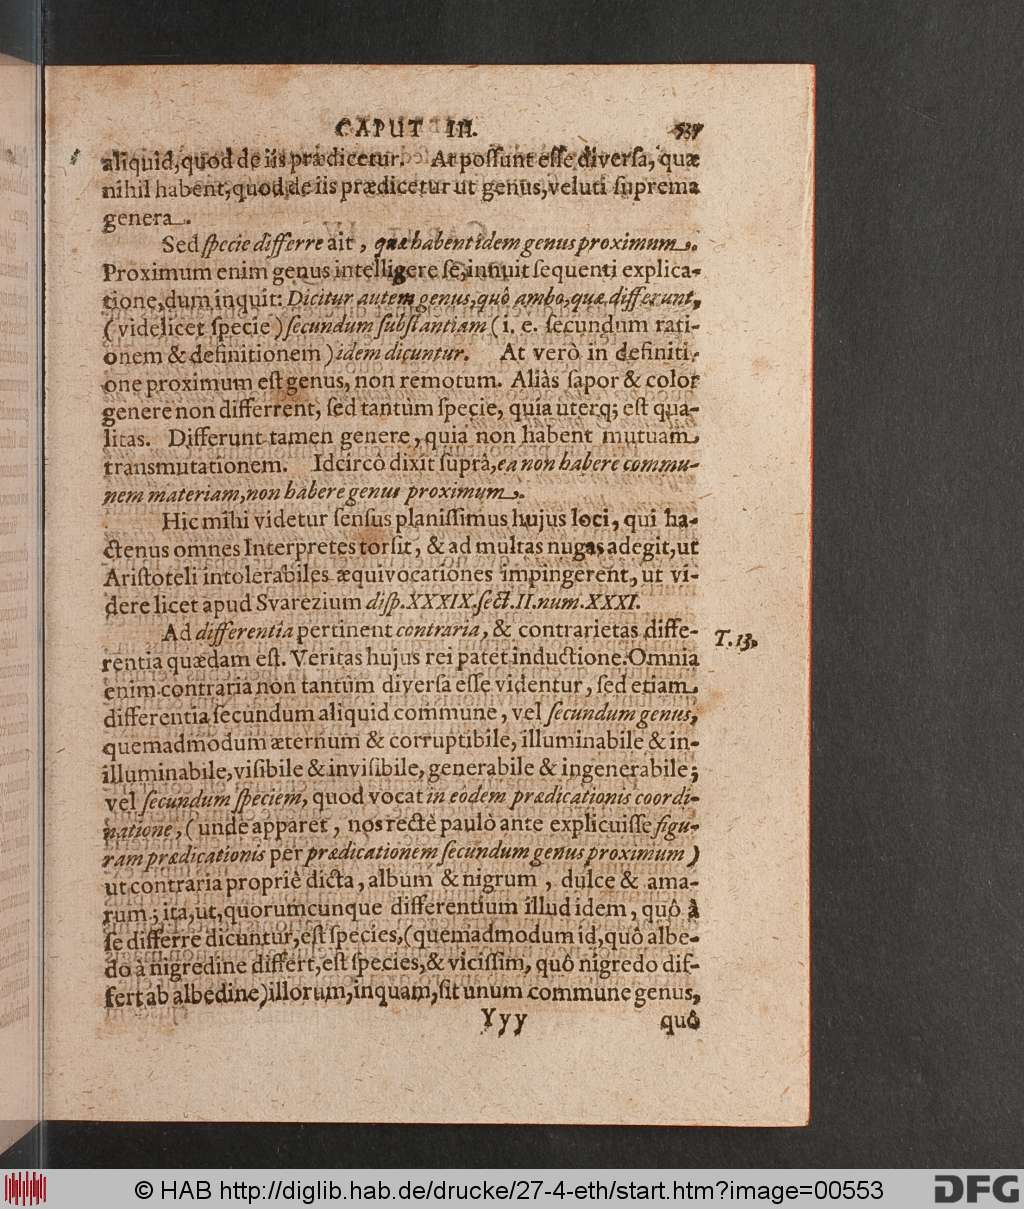 CAPUT III. 537
aliquid, quod de iis prædicetur. At possunt esse diversa, quæ
nihil habent, quod de iis prædicetur ut genus, veluti suprema
genera.
Sed specie differre ait, quæ habent idem genus proximum.
Proximum enim genus intelligere se, innuit sequenti explica-
tione, dum inquit: Dicitur autem genus, quô ambo, quæ differunt,
(videlicet specie) secundum substantiam (i. e. secundum rati-
onem & definitionem) idem dicuntur. At verò in definiti-
one proximum est genus, non remotum. Aliàs sapor & color
genere non differrent, sed tantùm specie, quia uterq; est qua-
litas. Differunt tamen genere, quia non habent mutuam
transmutationem. Idcircò dixit suprà, ea non habere commu-
nem materiam, non habere genus proximum.
Hic mihi videtur sensus planissimus hujus loci, qui ha-
ctenus omnes Interpretes torsit, & ad multas nugas adegit, ut
Aristoteli intolerabiles æquivocationes impingerent, ut vi-
dere licet apud Svarezium disp. XXXIX. sect. II. num. XXXI.
Ad differentia pertinent contraria, & contrarietas diffe-
rentia quædam est. Veritas hujus rei patet inductione. Omnia
T. 13,
enim contraria non tantùm diversa esse videntur, sed etiam
differentia secundum aliquid commune, vel secundum genus,
quemadmodum æternum & corruptibile, illuminabile & in-
illuminabile, visibile & invisibile, generabile & ingenerabile;
vel secundum speciem, quod vocat in eodem prædicationis coordi-
natione, (unde apparet, nos rectè paulò ante explicuisse figu-
ram prædicationis per prædicationem secundum genus proximum)
ut contraria propriè dicta, album & nigrum, dulce & ama-
rum; ita, ut, quorumcunque differentium illud idem, quô à
se differre dicuntur, est species, (quemadmodum id, quô albe-
do à nigredine differt, est species, & vicissim, quô nigredo dif-
fert ab albedine) illorum, inquam, sit unum commune genus,
Yyy quô
© HAB http://diglib.hab.de/drucke/27-4-eth/start.htm?image=00553 DFG